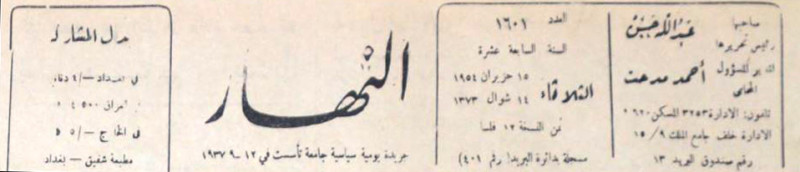 صاحبها
عبدالله حسن
رئيس تحريرها
المدير المسؤول
المحامي
أحمد مدحت
تلفون: الادارة ٣٢٥٣ المسكن
الادارة خلف جامع الملك ٩/ ١٥
رقم صندوق البريد ١٣
العدد ١٦٠١
السنة السابعة عشرة
الثلاثاء
١٥ حزيران ١٩٥٤
١٤ شوال ١٣٧٣
ثمن النسخة ١٢ فلسا
مسجلة بدائرة البريد (رقم ٤٠١)
النهار
جريدة يومية سياسية جامعة تأسست في ١٢ــ٩ ١٩٣٧
بدل الاشتراك
في بغداد
العراق ٤٥٠٠
في الخارج
مطبعة شفيق – بغداد